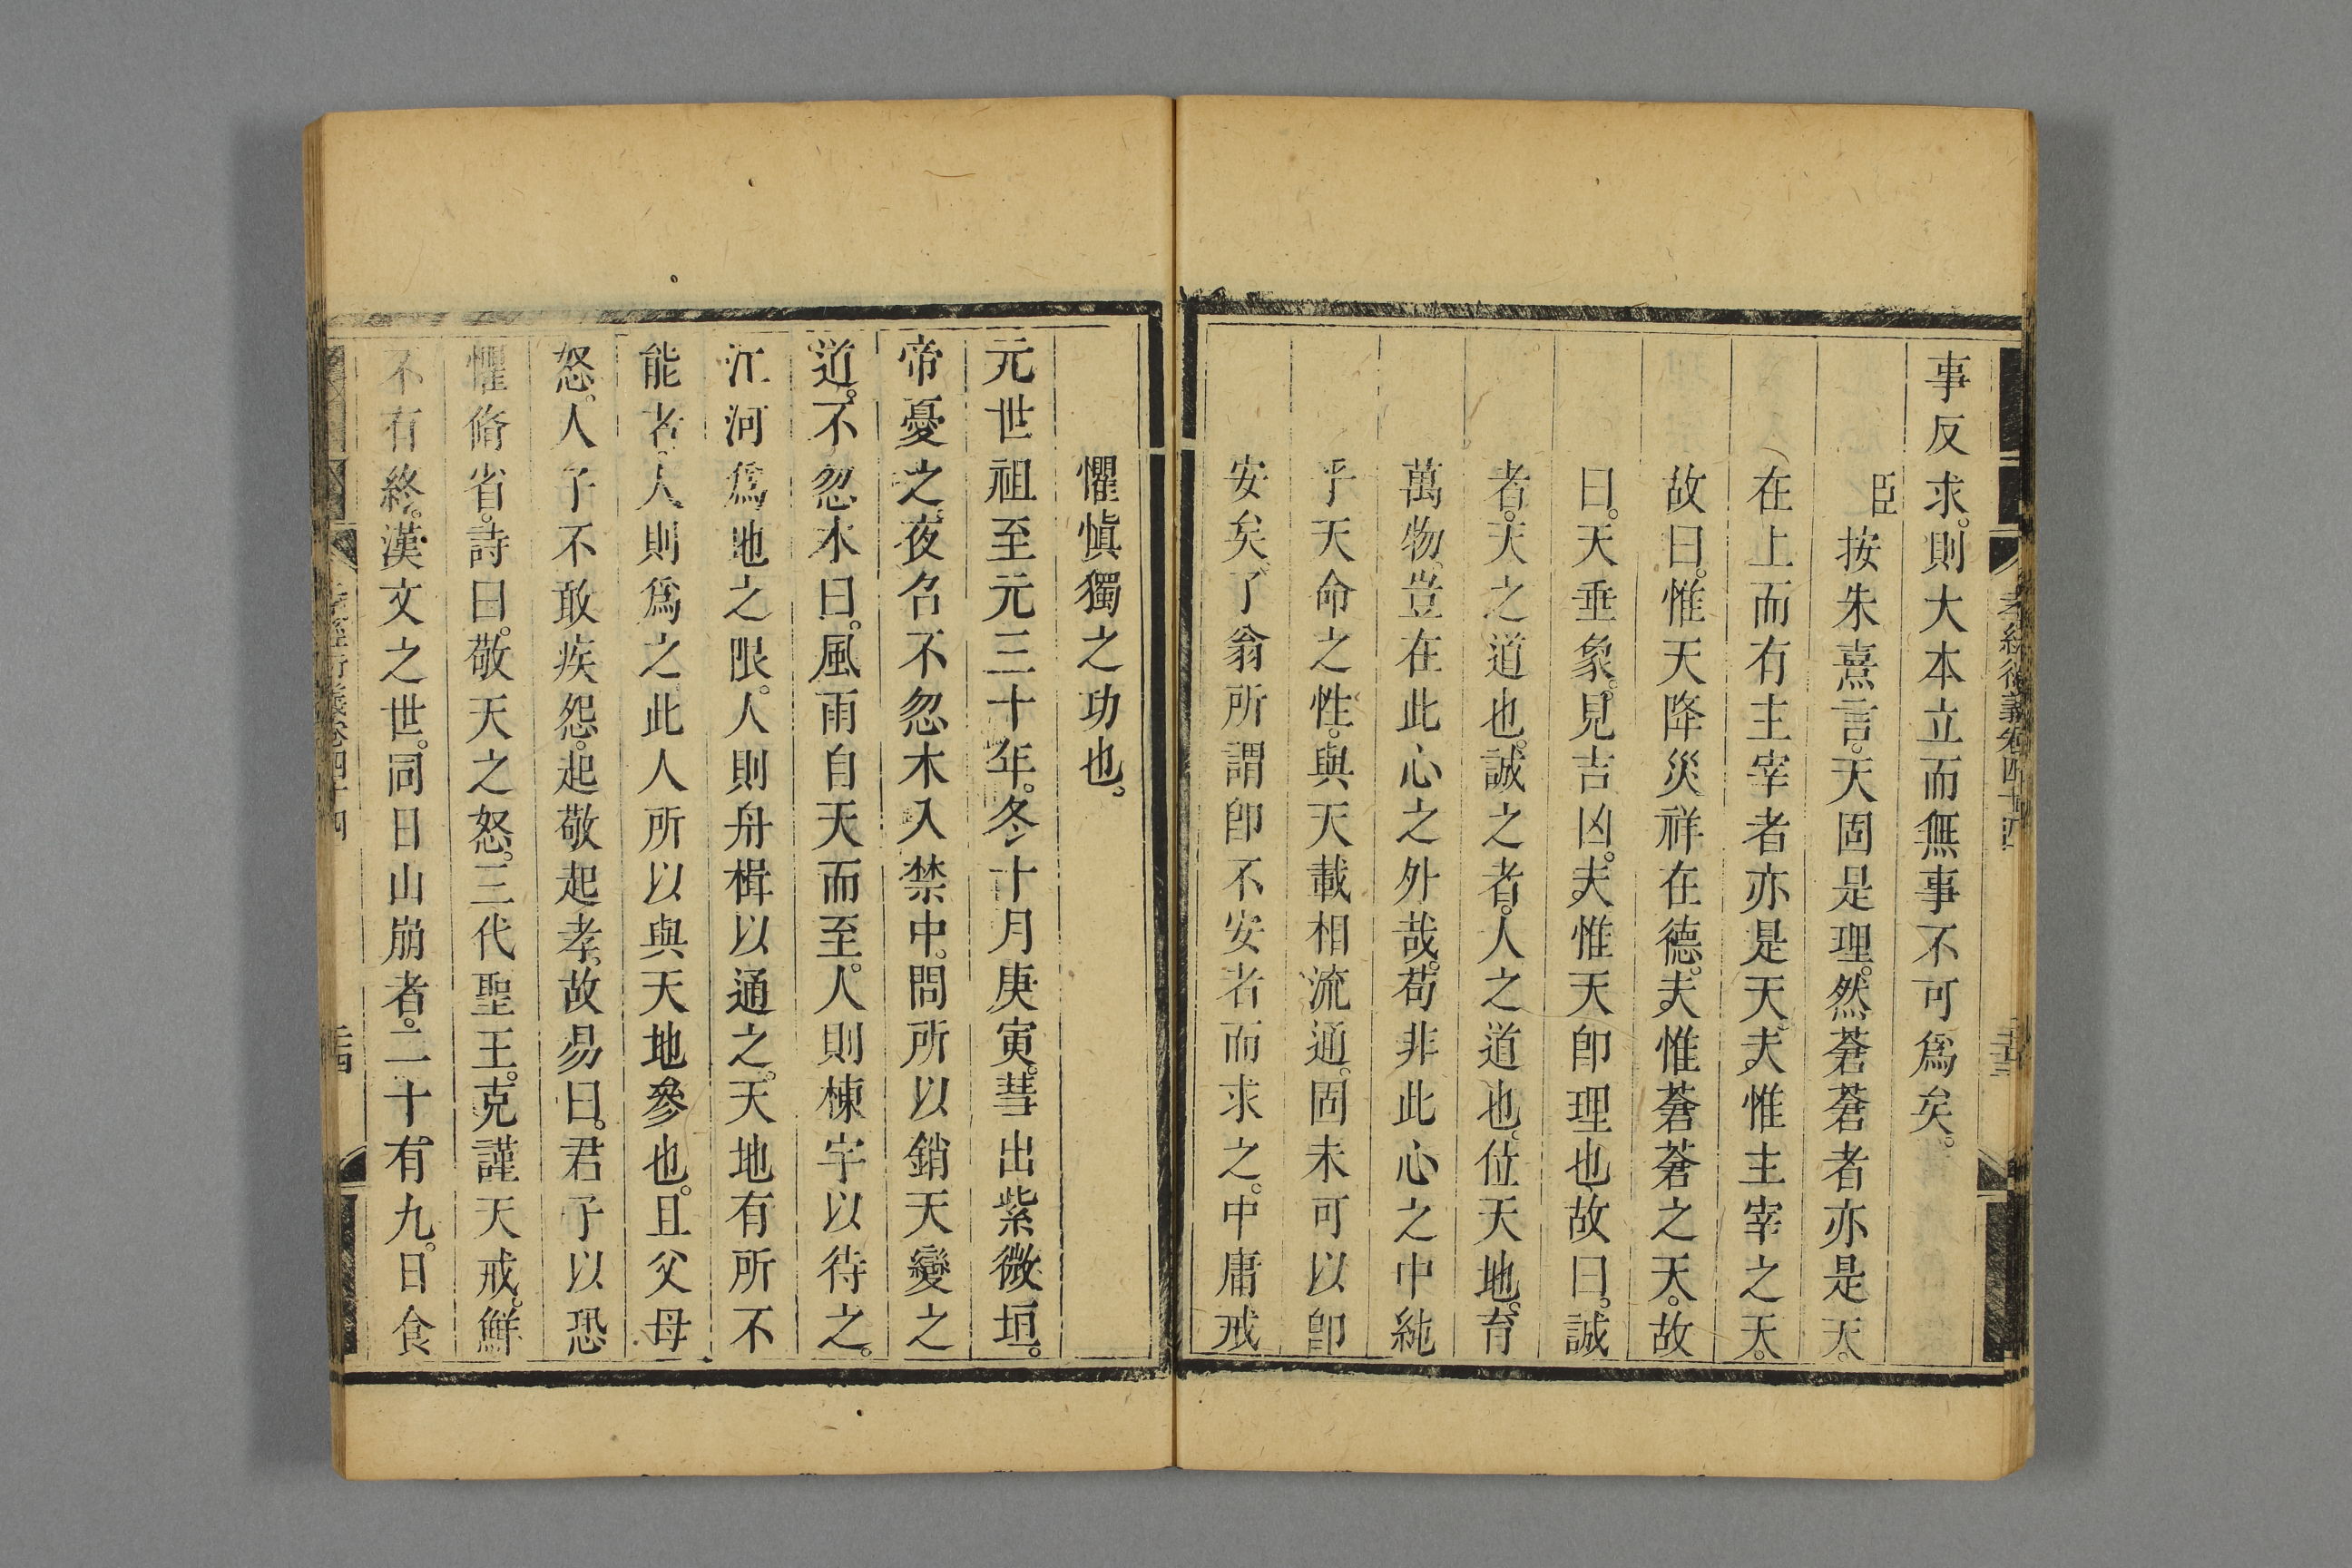 事反求。則大本立而無事不可爲矣。
臣按朱熹言。天固是理。然蒼蒼者亦是天。
在上而有主宰者亦是天。夫惟主宰之天。
故曰。惟天降災祥在德。夫惟蒼蒼之天。故
曰。天垂象。見吉凶。夫惟天卽理也。故曰。誠
者。天之道也。誠之者。人之道也。位天地。育
萬物。豈在此心之外哉。苟非此心之中純
乎天命之性。與天載相流通。固未可以卽
安矣。了翁所謂卽不安者而求之。中庸戒
懼愼獨之功也。
元世祖至元三十年。冬十月庚寅。彗出紫微垣。
帝憂之。夜召不忽木入禁中。問所以銷天變之
道。不忽木曰。風雨自天而至。人則棟宇以待之。
江河爲地之限。人則舟楫以通之。天地有所不
能者。人則爲之。此人所以與天地參也。且父母
怒。人子不敢疾怨。起敬起孝。故易曰。君子以恐
懼脩省。詩曰。敬天之怒。三代聖王。克謹天戒。鮮
不有終。漢文之世。同日山崩者。二十有九。日食
孝經衍義卷四十四